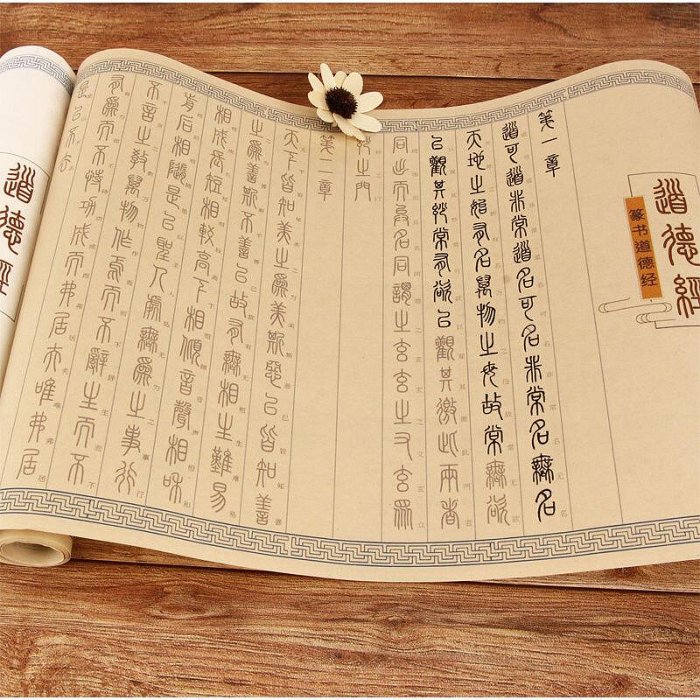 道德經
篆书道德经
第一章
道可道非常道名可名非常名無名
天地之始有名萬物之母故常無欲
以觀其妙常有欲以觀其徼此兩者
同出而異名同謂之玄玄之又玄眾
之門
第二章
天下皆知美之為美斯惡已皆知善
之為善斯不善已故有無相生難易
相成長短相較高下相傾音聲相和
前後相隨是以聖人處無為之事行
不言之教萬物作焉而不辭生而不
有為而不恃功成而弗居夫唯弗居
是以不去
道德經